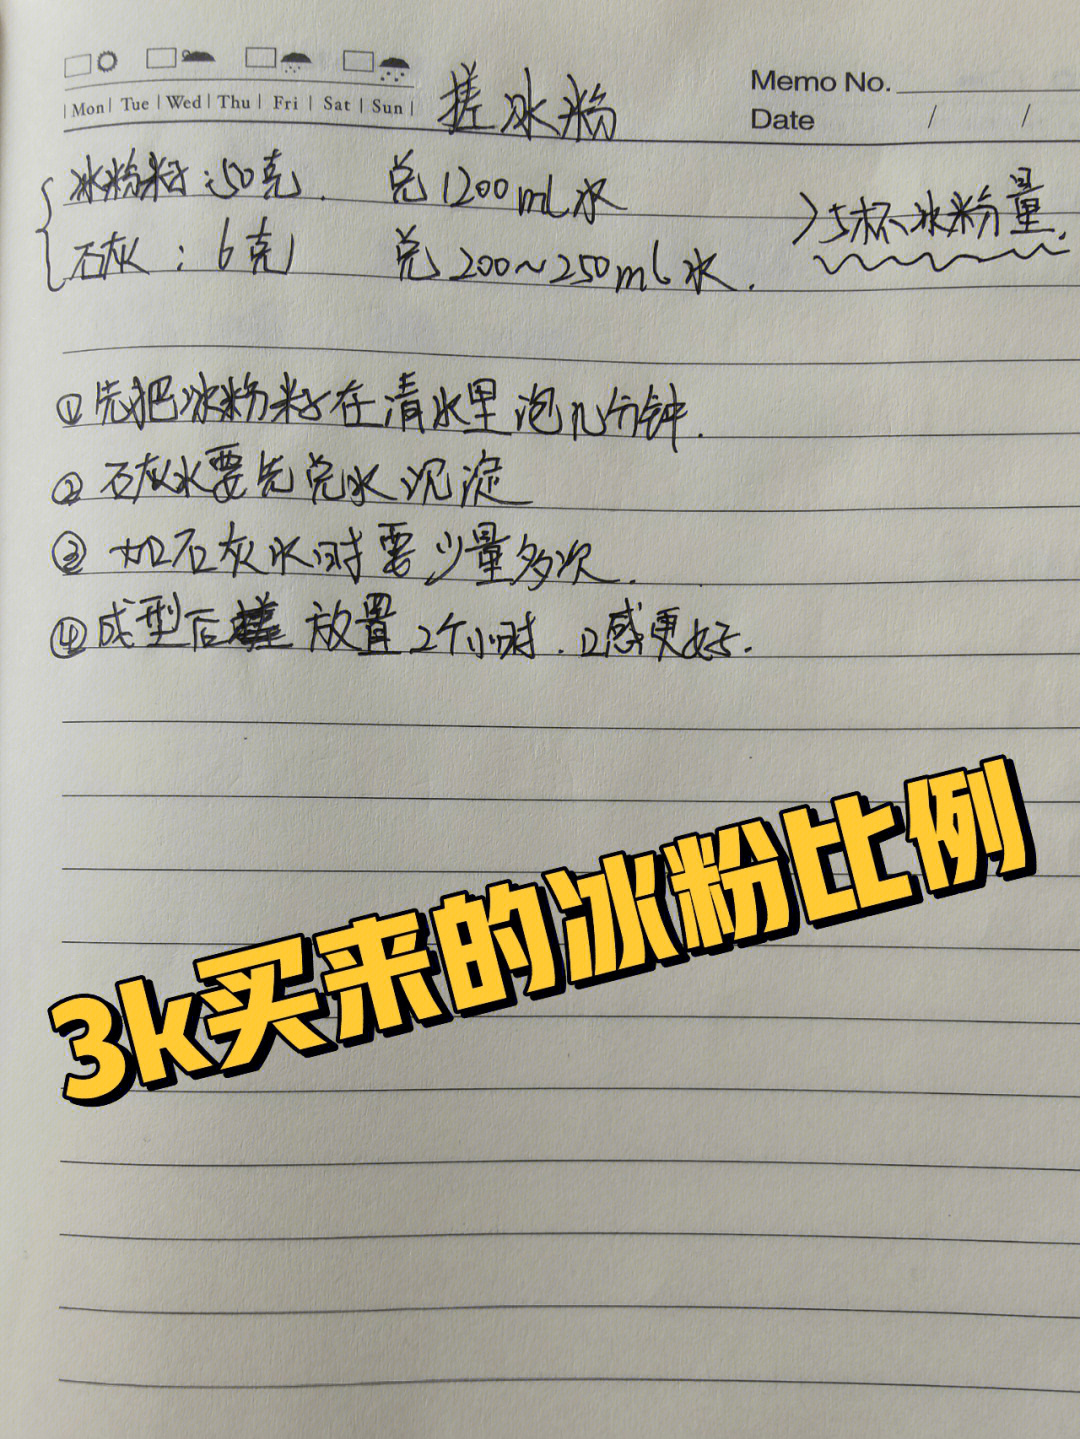 Mon Tue Wed Thu Fri Sat Sun
搓冰粉
Memo No.
Date / /
冰粉籽:50克. 兑1200ml水
石灰:6克 兑200~250ml水.
>5杯冰粉量.
①先把冰粉籽在清水里泡几分钟.
②石灰水要先兑水沉淀
③加石灰水时要少量多次.
④成型后放置2个小时.口感更好.
3k买来的冰粉比例